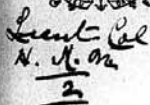 Lieut Col
N. M.
2